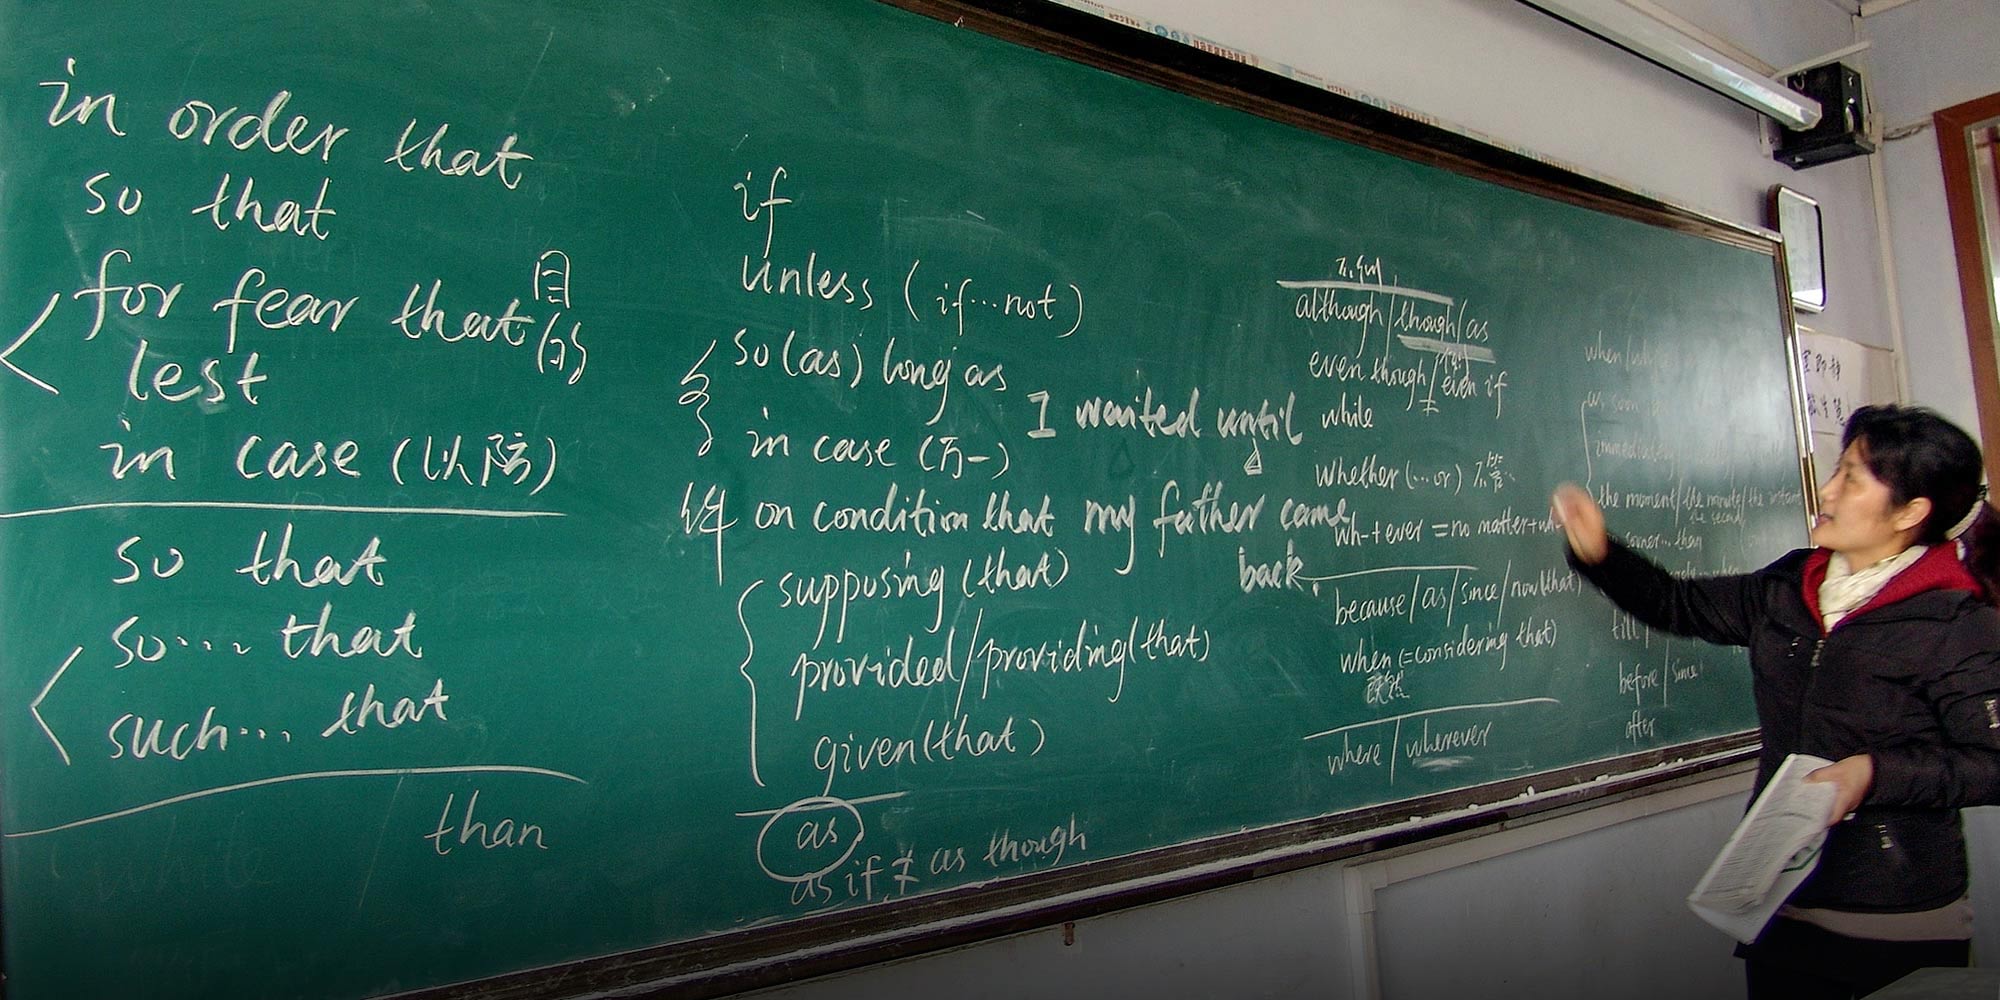 in order that
so that
for fear that 目的
lest
in case (以防)
so that
so... that
such... that
than
while
if
unless (if...not)
so (as) long as
in case (万一)
on condition that
supposing (that)
provided/providing (that)
given (that)
条件
as
as if ≠ as though
I waited until
my father came
back.
although/though/as
even though/even if
while
whether (...or) 不管
wh-+ever = no matter+wh
because/as/since/now (that)
when (=considering that)
既然
where/wherever
when/
as soon
immediately
the moment/the minute/the instant
the second
than
when
till/
before/since
after